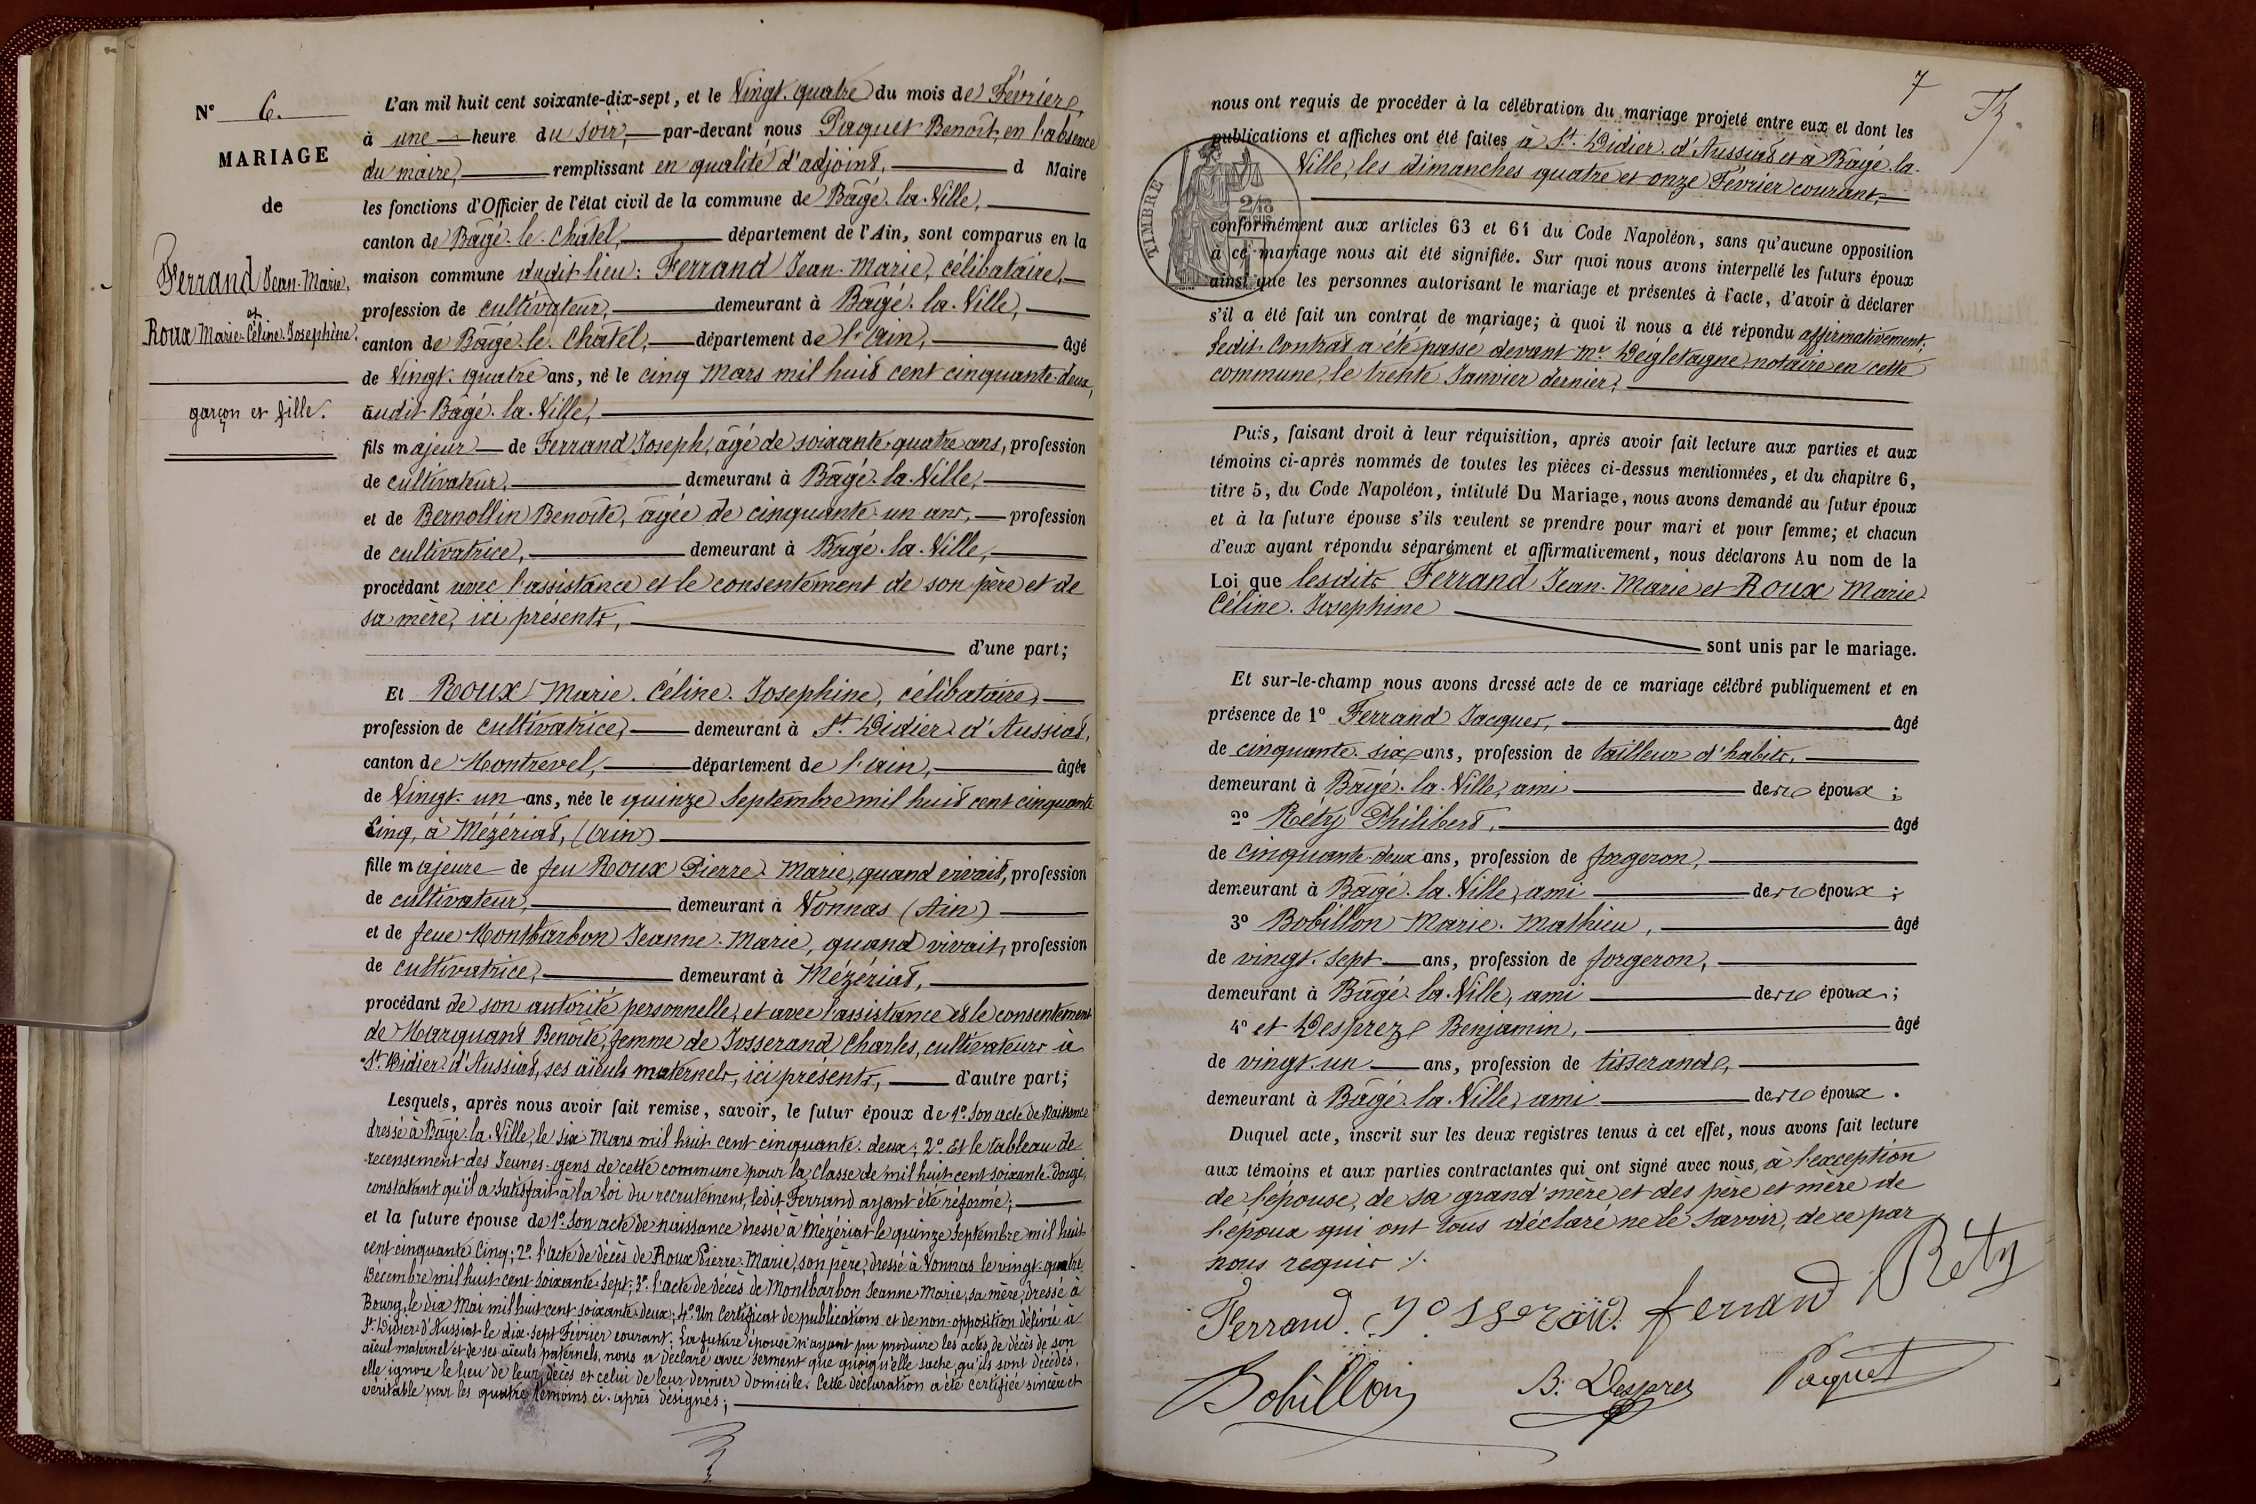 N° 6.
MARIAGE
de
Ferrand Jean-Marie,
et
Roux Marie-Céline-Josephine.
garçon et fille.
L'an mil huit cent soixante-dix-sept, et le Vingt-quatre du mois de Février,
à une heure du soir, par-devant nous Paquet Benoît, en l'absence
du maire, remplissant en qualité d'adjoint, d Maire
les fonctions d'Officier de l'état civil de la commune de Bâgé-la-Ville,
canton de Bâgé-le-Châtel, département de l'Ain, sont comparus en la
maison commune dudit lieu: Ferrand Jean-Marie, célibataire,
profession de cultivateur, demeurant à Bâgé-la-Ville,
canton de Bâgé-le-Châtel, département de l'Ain, âgé
de Vingt-quatre ans, né le cinq Mars mil huit cent cinquante-deux,
audit Bâgé-la-Ville,
fils majeur de Ferrand Joseph, âgé de soixante-quatre ans, profession
de cultivateur, demeurant à Bâgé-la-Ville,
et de Bernollin Benoîte, âgée de cinquante-un ans, profession
de cultivatrice, demeurant à Bâgé-la-Ville,
procédant avec l'assistance et le consentement de son père et de
sa mère, ici présents,
d'une part;
Et Roux Marie-Céline-Josephine, célibataire,
profession de cultivatrice, demeurant à St. Didier-d'Aussiat,
canton de Montrevel, département de l'Ain, âgée
de Vingt-un ans, née le quinze Septembre mil huit cent cinquante
Cinq, à Mézériat, (Ain)
fille majeure de feu Roux Pierre-Marie, quand vivait, profession
de cultivateur, demeurant à Vonnas (Ain)
et de feue Montbarbon Jeanne-Marie, quand vivait, profession
de cultivatrice, demeurant à Mézériat,
procédant de son autorité personnelle, et avec l'assistance et le consentement
de Marquant Benoîte, femme de Josserand Charles, cultivateurs à
St. Didier-d'Aussiat, ses aïeuls maternels, ici présents, d'autre part;
Lesquels, après nous avoir fait remise, savoir, le futur époux de 1°. Son acte de Naissance
dressé à Bâgé-la-Ville, le six Mars mil huit cent cinquante-deux; 2°. Et le tableau de
recensement des Jeunes-gens de cette commune pour la classe de mil huit cent soixante-douze,
constatant qu'il a satisfait à la loi du recrutement, ledit Ferrand ayant été réformé;
et la future épouse de 1°. Son acte de naissance dressé à Mézériat le quinze Septembre mil huit
cent cinquante Cinq; 2°. l'acte de décès de Roux Pierre-Marie, son père, dressé à Vonnas le vingt-quatre
Décembre mil huit cent soixante-sept; 3°. l'acte de décès de Montbarbon Jeanne-Marie, sa mère, dressé à
Bourg, le dix Mai mil huit cent soixante-deux; 4°. Un Certificat de publications et de non-opposition délivré à
St. Didier-d'Aussiat le dix-sept Février courant. La future épouse n'ayant pu produire les actes de décès de son
aïeul maternel et de ses aïeuls paternels, nous a déclaré avec serment que quoiqu'elle sache qu'ils sont décédés,
elle ignore le lieu de leur décès et celui de leur dernier domicile. Cette déclaration a été certifiée sincère et
véritable par les quatre témoins ci-après désignés;
7
nous ont requis de procéder à la célébration du mariage projeté entre eux et dont les
publications et affiches ont été faites à St. Didier-d'Aussiat et à Bâgé-la-
Ville, les dimanches quatre et onze Février courant,
TIMBRE
conformément aux articles 63 et 64 du Code Napoléon, sans qu'aucune opposition
à ce mariage nous ait été signifiée. Sur quoi nous avons interpellé les futurs époux
ainsi que les personnes autorisant le mariage et présentes à l'acte, d'avoir à déclarer
s'il a été fait un contrat de mariage; à quoi il nous a été répondu affirmativement.
Ledit Contrat a été passé devant Mr. Deigletagne, notaire en cette
commune, le trente Janvier dernier;
Puis, faisant droit à leur réquisition, après avoir fait lecture aux parties et aux
témoins ci-après nommés de toutes les pièces ci-dessus mentionnées, et du chapitre 6,
titre 5, du Code Napoléon, intitulé Du Mariage, nous avons demandé au futur époux
et à la future épouse s'ils veulent se prendre pour mari et pour femme; et chacun
d'eux ayant répondu séparément et affirmativement, nous déclarons Au nom de la
Loi que lesdits Ferrand Jean-Marie et Roux Marie
Céline-Josephine
sont unis par le mariage.
Et sur-le-champ nous avons dressé acte de ce mariage célébré publiquement et en
présence de 1° Ferrand Jacques, âgé
de cinquante-six ans, profession de tailleur d'habits,
demeurant à Bâgé-la-Ville, ami des époux;
2° Réty Philibert, âgé
de cinquante-deux ans, profession de forgeron,
demeurant à Bâgé-la-Ville, ami des époux;
3° Bobillon Marie-Mathieu, âgé
de vingt-sept ans, profession de forgeron,
demeurant à Bâgé-la-Ville, ami des époux;
4° et Desprez Benjamin, âgé
de vingt-un ans, profession de tisserand,
demeurant à Bâgé-la-Ville, ami des époux.
Duquel acte, inscrit sur les deux registres tenus à cet effet, nous avons fait lecture
aux témoins et aux parties contractantes qui ont signé avec nous, à l'exception
de l'épouse, de sa grand'mère et des père et mère de
l'époux qui ont tous déclaré ne le savoir, de ce par
nous requis ./.
Ferrand. Josserand. ferrand Réty
Bobillon B. Desprez Paquet